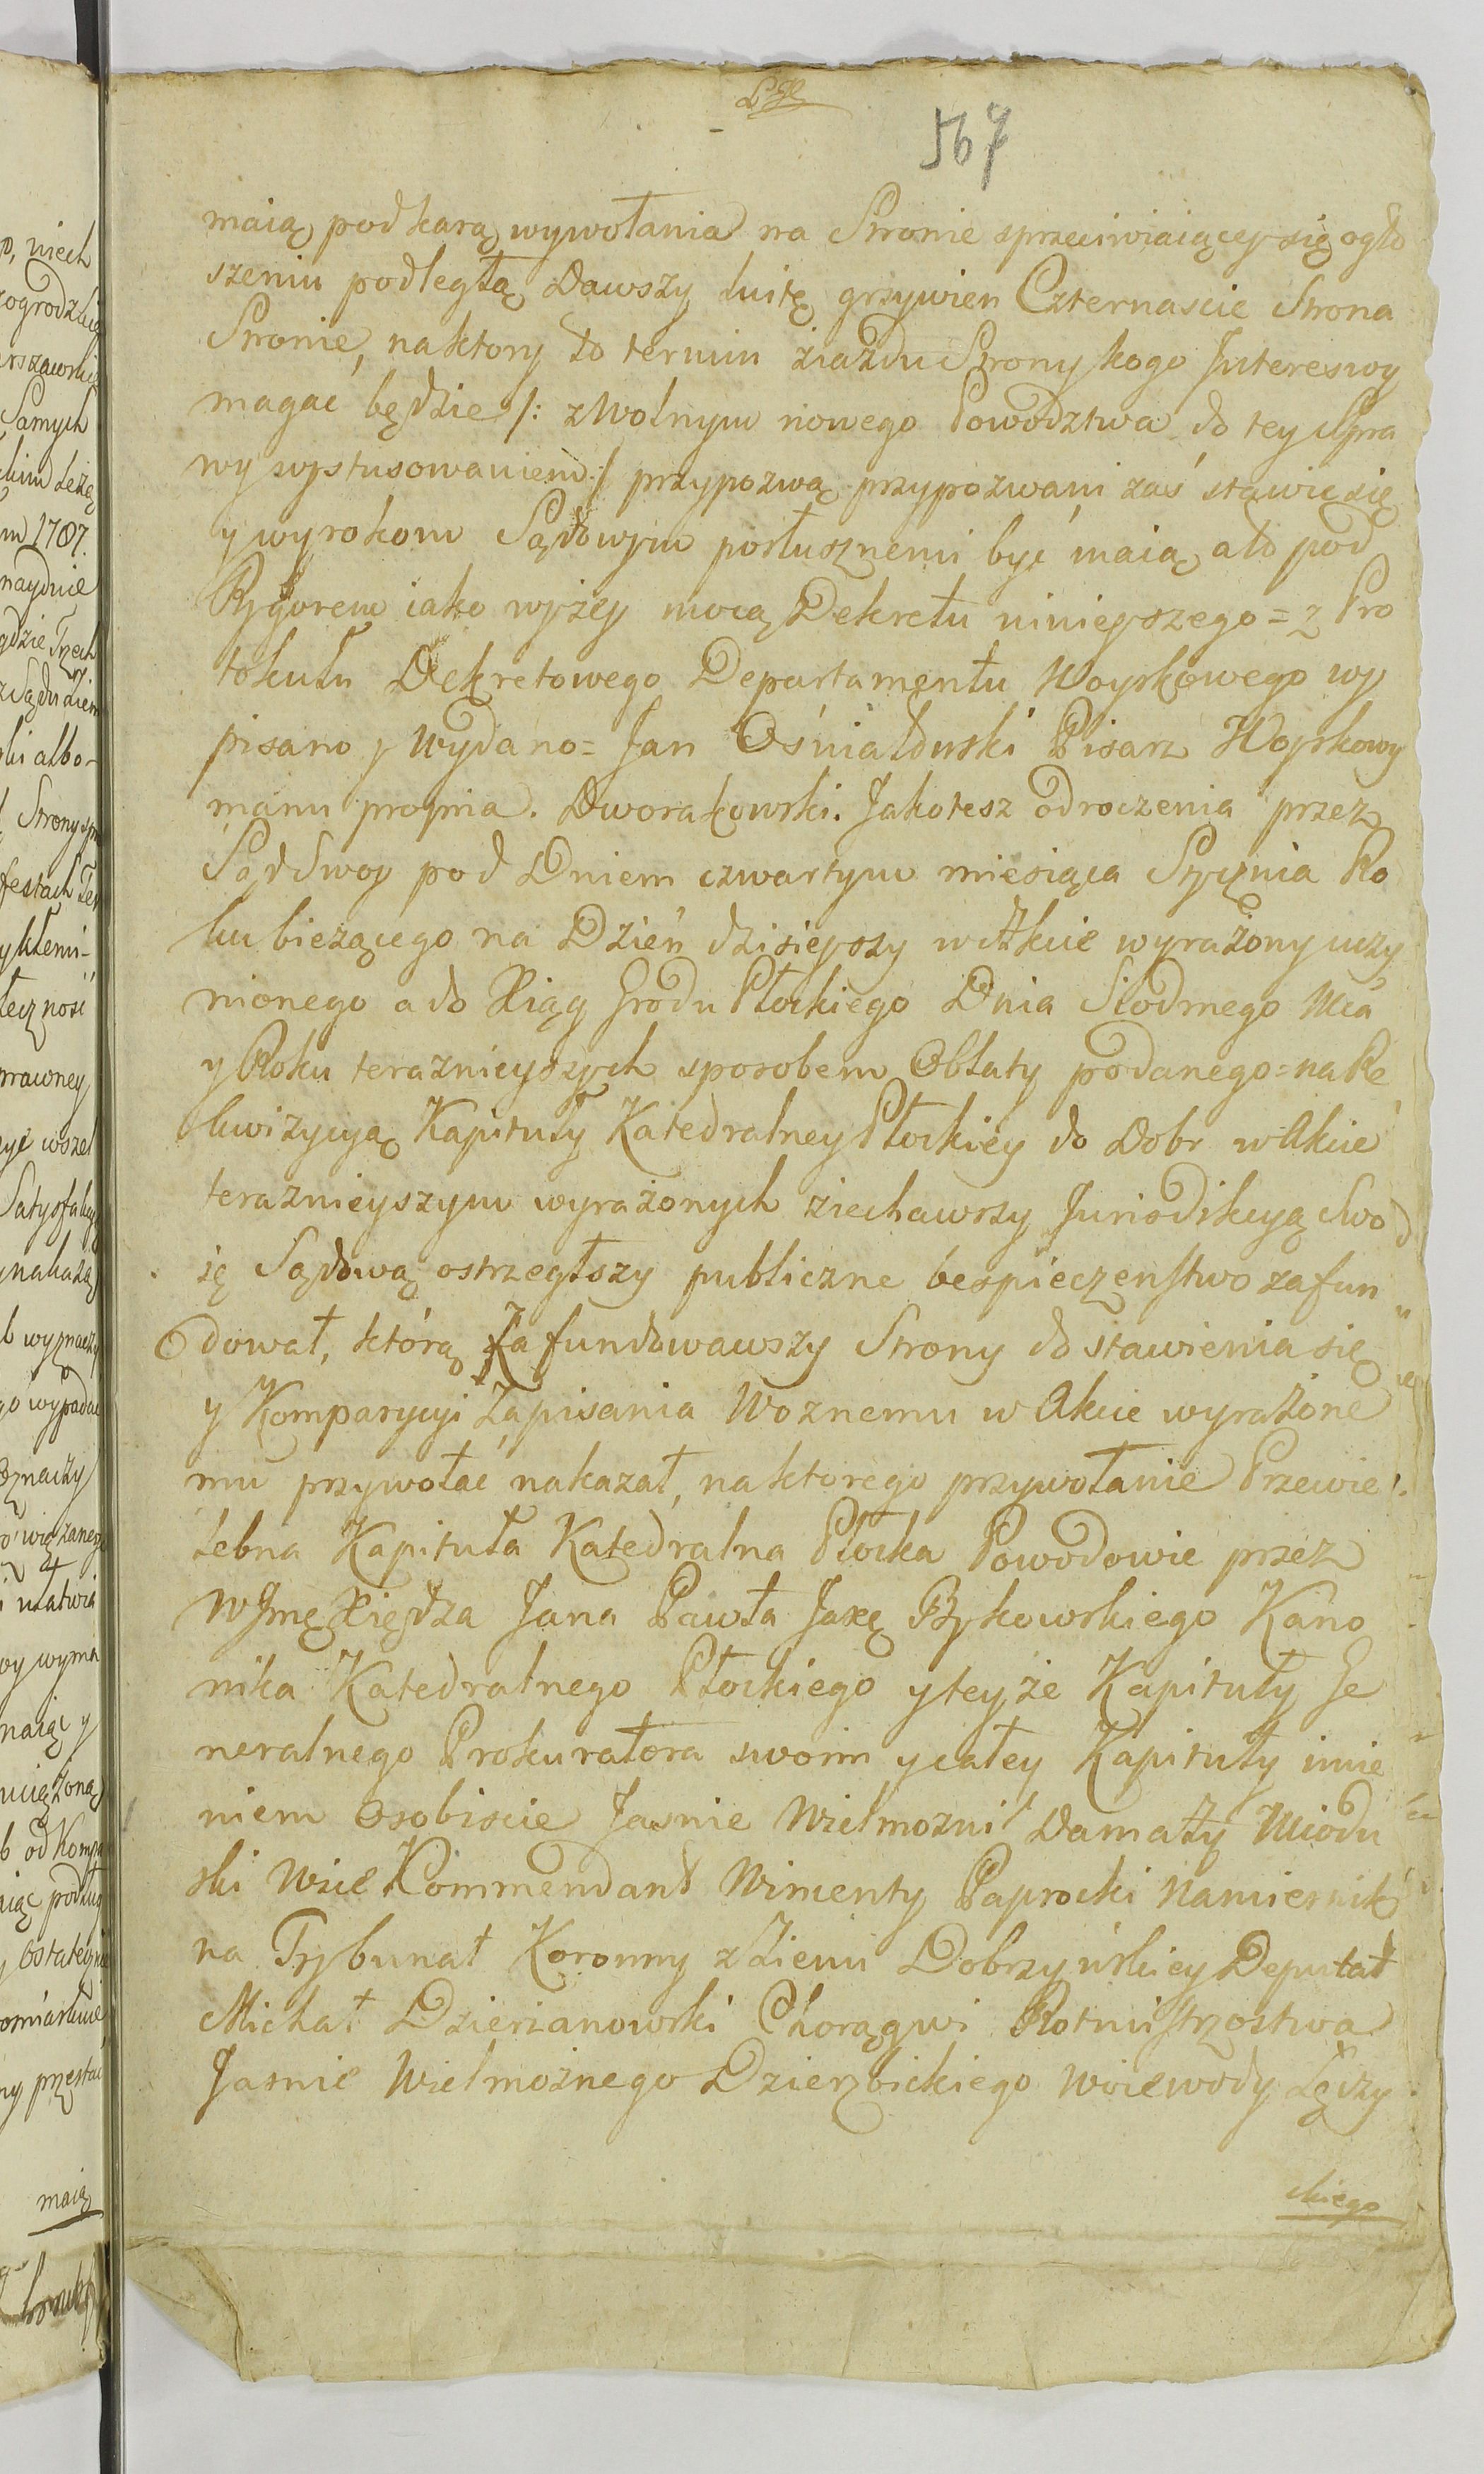 567
maią pod karą wywołania na Stronie sprzeciwiaiącey się ogło
szeniu podległą Dawszy Luitę grzywien Czternascie Strona
Stronie, naktory to termin ziazdu Strony kogo Interes wy
magać będzie /: z Wolnym nowego Powodztwa do tey Spra
wy wystosowaniem :/ przypozwą przypozwani zaś stawić się
y wyrokom Sądowym posłusznemi być maią a to pod
Rygorem iako wyżey mocą Dekretu ninieyszego = z Pro
tokułu Dekretowego Departamentu Woyskowego wy
pisano y Wydano = Jan Ośniałowski Pisarz Woyskowy
manu propria. Dworakowski. Jakotesz odroczenia przez
Sąd Swoy pod Dniem czwartym miesiąca Stycznia Ro
ku bieżącego na Dzień dzisieyszy w Akcie wyrażony uczy
nionego a do Xiąg Grodu Płockiego Dnia Siodmego Mca
y Roku teraznieyszych sposobem Oblaty podanego = na Re
kwizycyą Kapituły Katedralney Płockiey do Dobr w Akcie
teraznieyszym wyrażonych ziechawszy Jurisdikcyą Swo
ię Sądową ostrzegłszy publiczne bespieczenstwo zafun
dował, którą Zafundowawszy Strony do stawienia się
y Komparycyi Zapisania Woznemu w Akcie wyrażone
mu przywołać nakazał, na ktorego przywołanie Przewie
lebna Kapituła Katedralna Płocka Powodowie przez
WJmę Xiędza Jana Pawła Jaxę Bykowskiego Kano
nika Katedralnego Płockiego y teyże Kapituły Ge
neralnego Prokuratora swoim y całey Kapituły imie
niem osobiscie Jasnie Wielmozni Damazy Miodu
ski Wice Kommendant Wincenty Paprocki Namiesnik
na Trybunał Koronny z Ziemi Dobrzyńskiey Deputat
Michał Dzierzanowski Chorągwi Rotmistrzostwa
Jasnie Wielmożnego Dzierzbickiego Woiewody Łęczy
ckiego